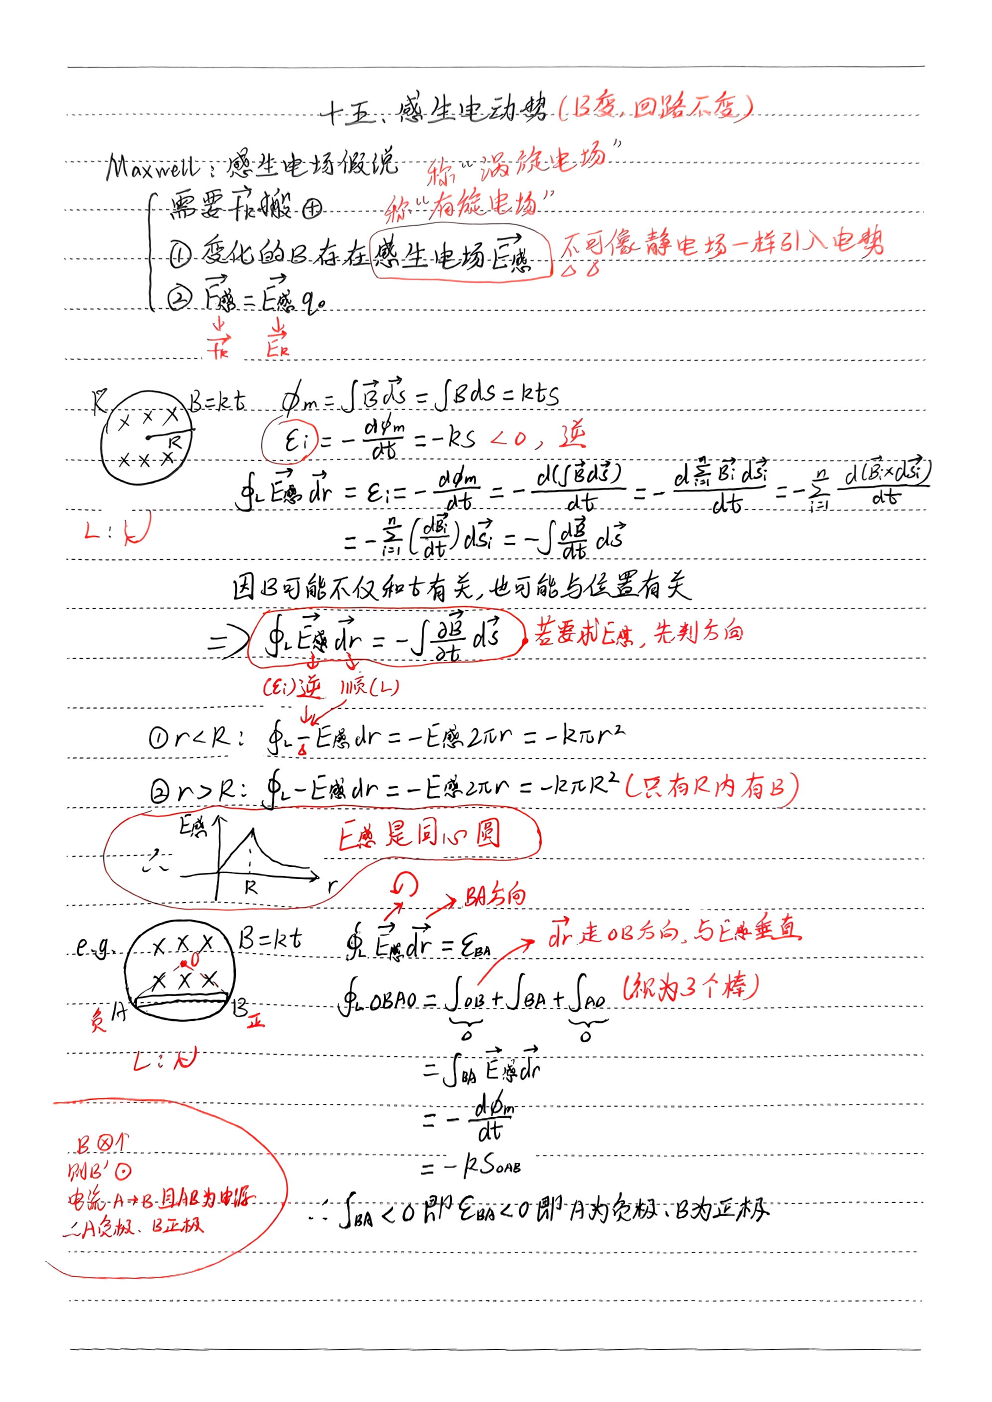 十五、感生电动势(B变,回路不变)
Maxwell:感生电场假说 称“涡旋电场”
需要F_K搬⊕ 称“有旋电场”
① 变化的B存在感生电场E感 不可像静电场一样引入电势
② F感=E感q。
↓ ↓
F_K E_K
R B=kt ϕm=∫B dS=∫BdS=ktS
× × × R × × ×
εi=-dϕm/dt=-kS<0,逆
∮L E感 dr=εi=-dϕm/dt=-d(∫B dS)/dt=-d∑(i=1→n) Bi dSi/dt=-∑(i=1→n) d(Bi×dSi)/dt
L:
=-∑(i=1→n)(dBi/dt)dSi=-∫dB/dt dS
因B可能不仅和t有关,也可能与位置有关
⇒ ∮L E感 dr=-∫∂B/∂t dS 若要求E感,先判方向
(εi)逆 顺(L)
①r<R: ∮L-E感dr=-E感2πr=-kπr²
②r>R: ∮L-E感dr=-E感2πr=-kπR²(只有R内有B)
∴ E感 R r E感是同心圆
BA方向
e.g. × × × B=kt ∮L E感 dr=εBA dr走OB方向,与E感垂直
O × × ×
负 A B 正
∮L OBAO=∫OB+∫BA+∫AO (视为3个棒)
0 0
L:
=∫BA E感 dr
=-dϕm/dt
=-kS_OAB
B⊗↑
则B'⊙
电流A→B且AB为电源
∴A负极、B正极
∴∫BA<0即εBA<0即A为负极、B为正极